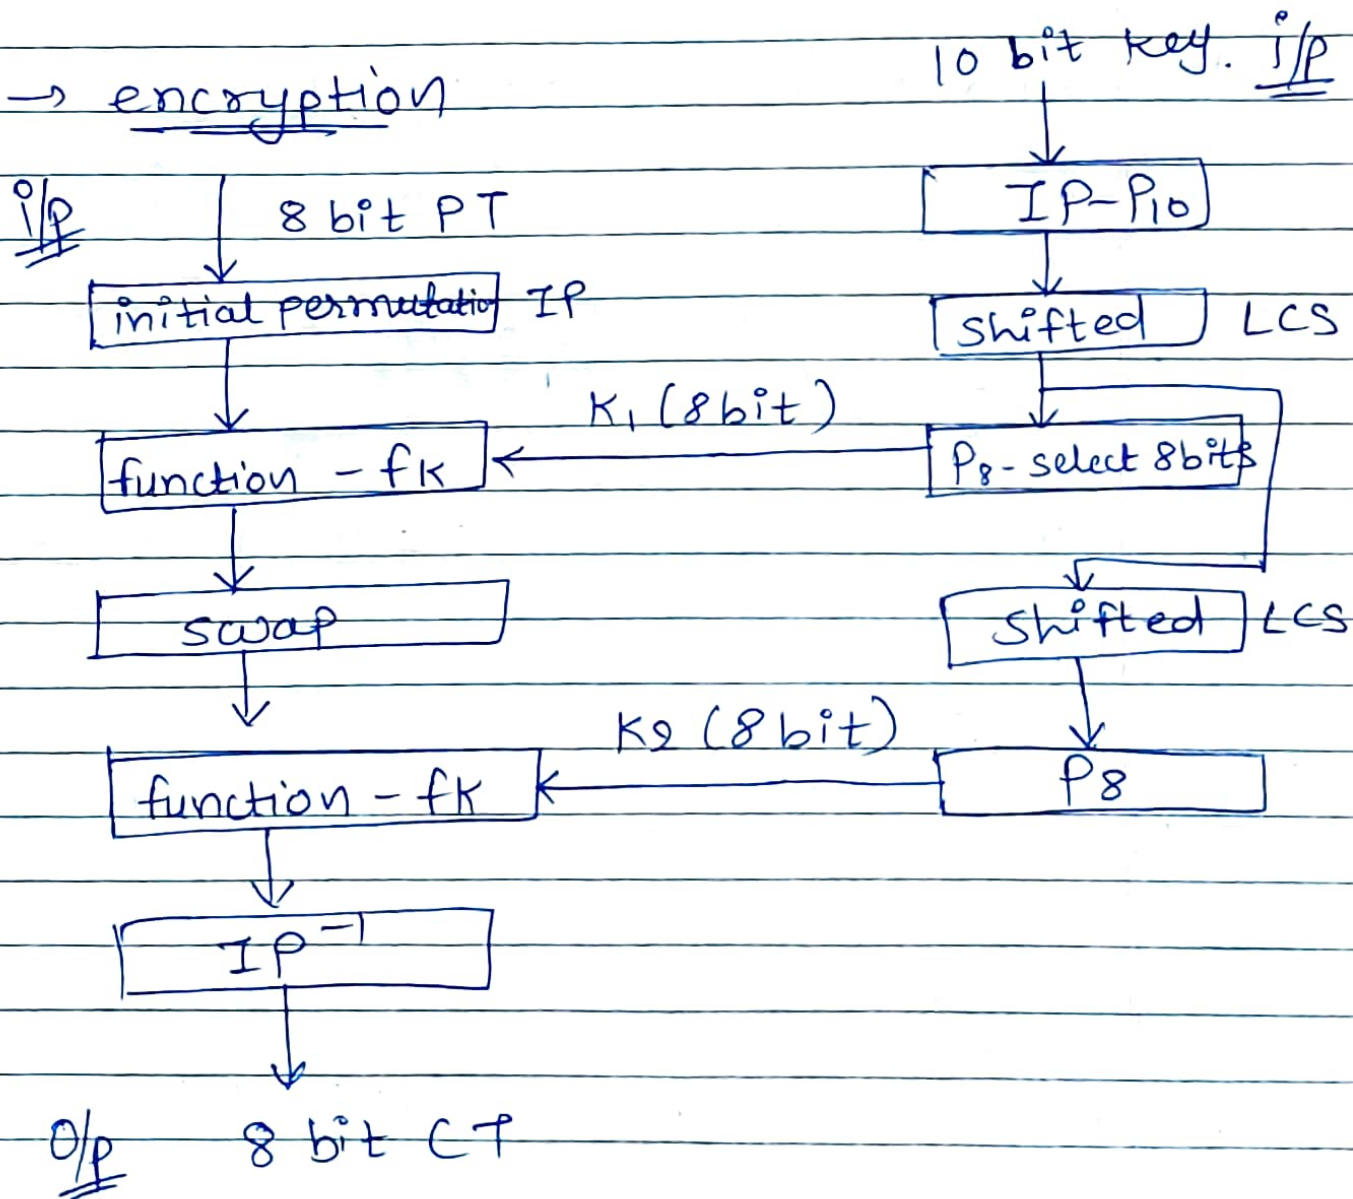 10 bit key. i/p
→ encryption
IP-P10
i/p 8 bit PT
initial permutatio IP
shifted LCS
K1 (8bit)
function - fK
P8 - select 8bits
swap
shifted LCS
K2 (8 bit)
function - fK
P8
IP⁻¹
O/p 8 bit CT